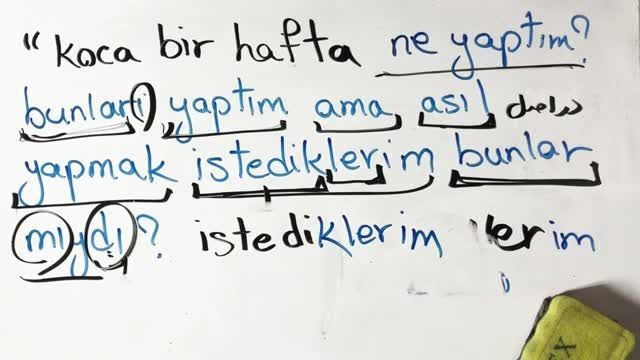 “ koca bir hafta ne yaptım?
bunları yaptım ama asıl دراصل
yapmak istediklerim bunlar
mıydı? istediklerim lerim